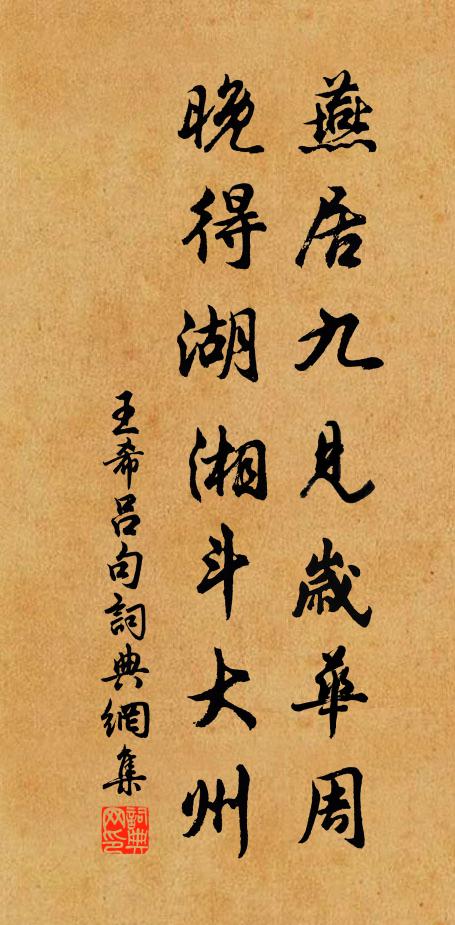 燕居九見歲華周
晚得湖湘斗大州
王希呂句詞典網集
詞典网印